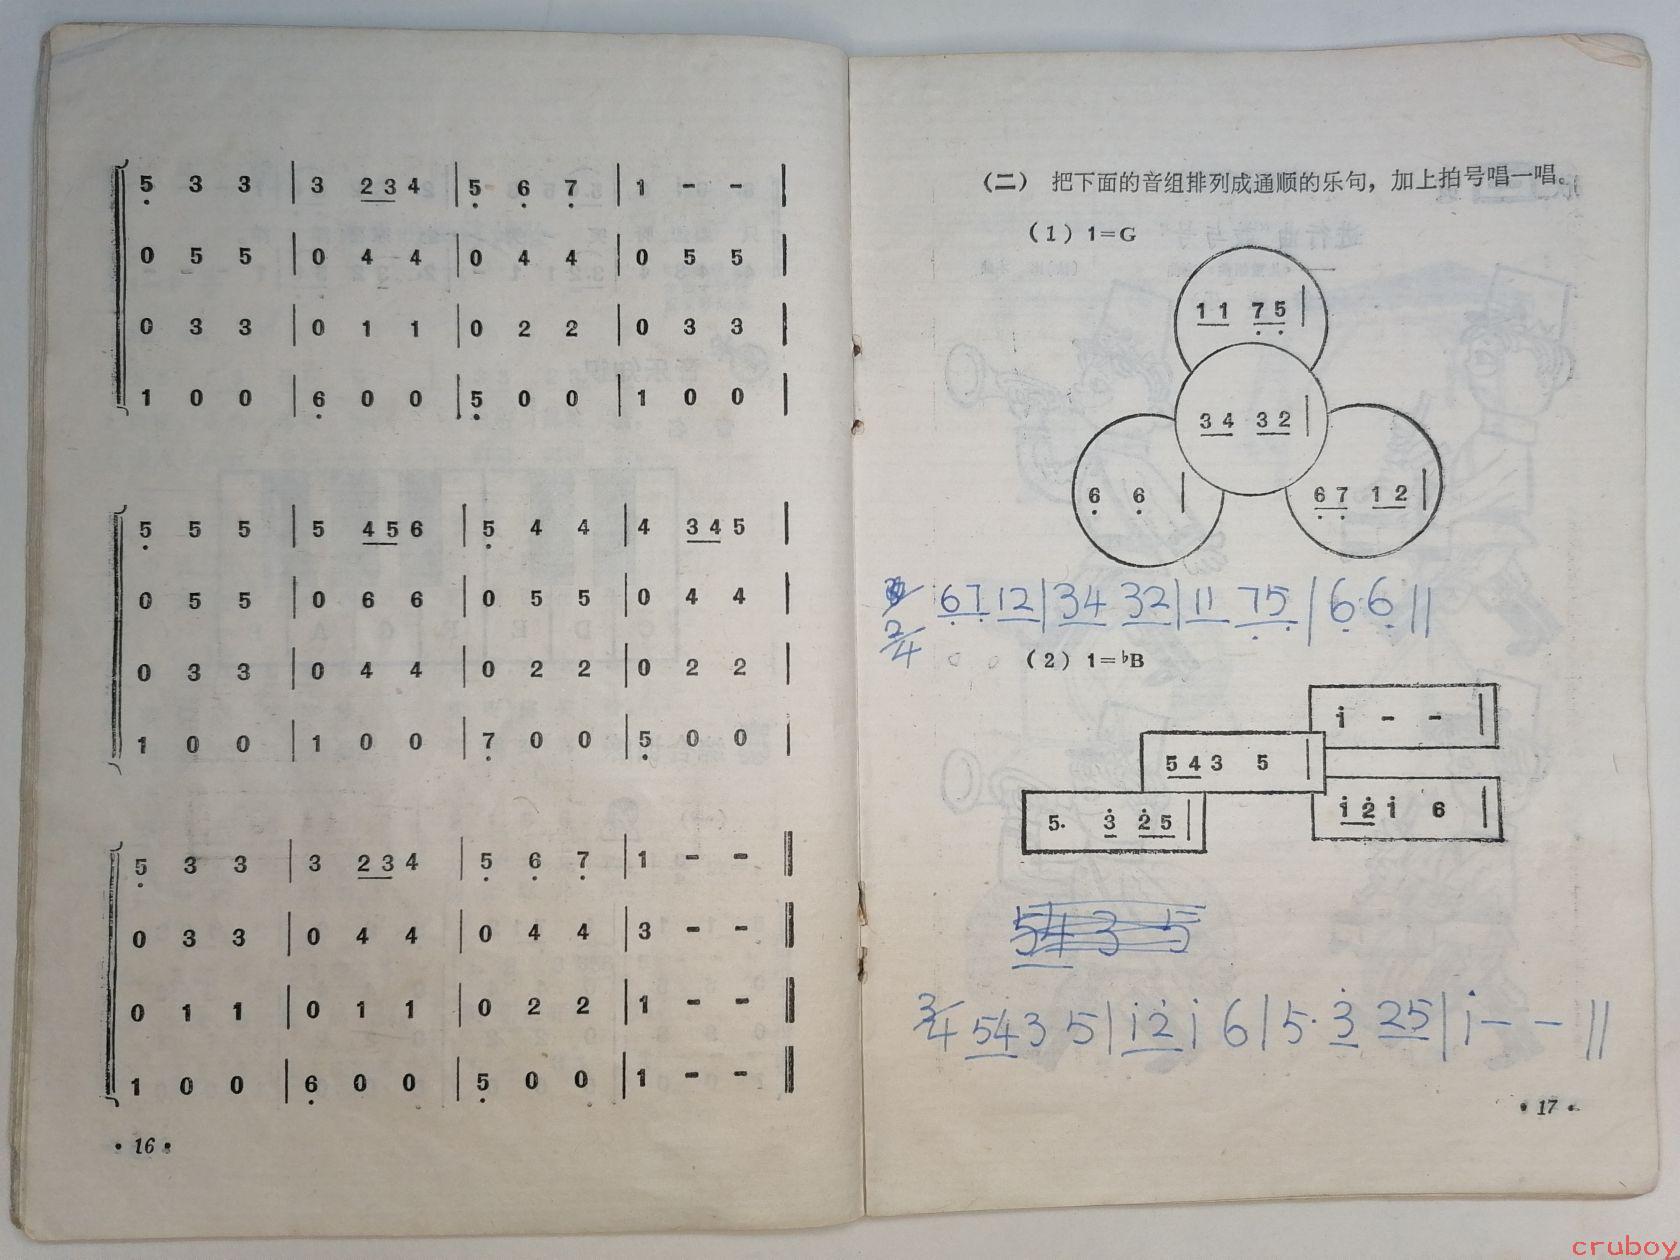 5̣ 3 3 | 3 2 3 4 | 5̣ 6̣ 7̣ | 1 - - |
0 5 5 | 0 4 4 | 0 4 4 | 0 5 5 |
0 3 3 | 0 1 1 | 0 2 2 | 0 3 3 |
1 0 0 | 6̣ 0 0 | 5̣ 0 0 | 1 0 0 |
5̣ 5 5 | 5 4 5 6 | 5̣ 4 4 | 4 3 4 5 |
0 5 5 | 0 6 6 | 0 5 5 | 0 4 4 |
0 3 3 | 0 4 4 | 0 2 2 | 0 2 2 |
1 0 0 | 1 0 0 | 7̣ 0 0 | 5̣ 0 0 |
5̣ 3 3 | 3 2 3 4 | 5̣ 6̣ 7̣ | 1 - - ‖
0 3 3 | 0 4 4 | 0 4 4 | 3 - - ‖
0 1 1 | 0 1 1 | 0 2 2 | 1 - - ‖
1 0 0 | 6̣ 0 0 | 5̣ 0 0 | 1 - - ‖
• 16 •
(二) 把下面的音组排列成通顺的乐句，加上拍号唱一唱。
(1) 1=G
1 1 7̣ 5̣ |
3 4 3 2 |
6̣ 6̣ |
6̣ 7̣ 1 2 |
2/4 6̣7̣ 12 | 34 32 | 11 7̣5̣ | 6̣ 6̣ ‖
(2) 1=♭B
1̇ - - |
5 4 3 5 |
1̇ 2̇ 1̇ 6 |
5· 3̇ 2̇ 5 |
54 3 5
3/4 54 3 5 | 1̇2̇ 1̇ 6 | 5· 3̇ 25 | 1̇ - - ‖
• 17 •
cruboy